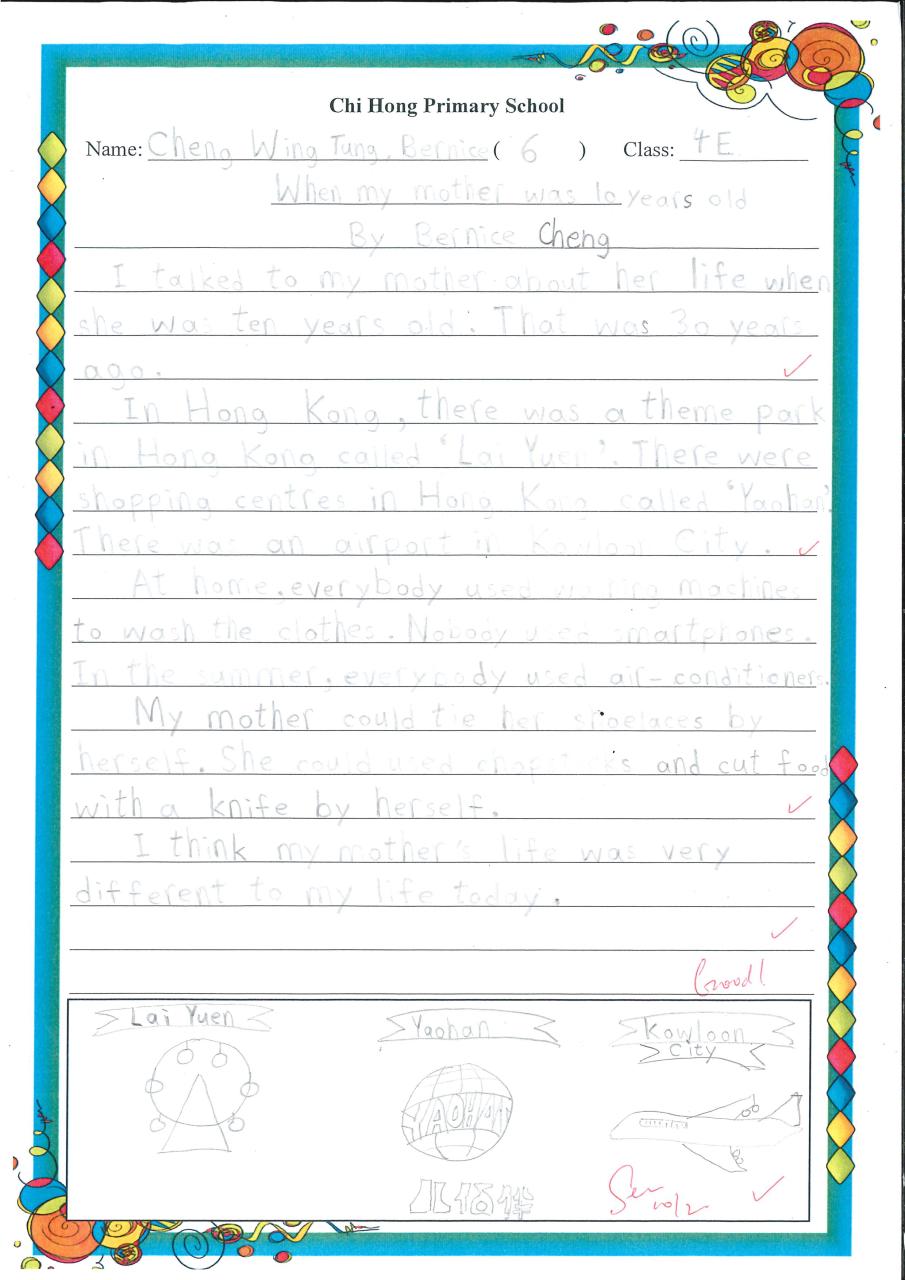 Chi Hong Primary School
Name: Cheng Wing Tung, Bernice ( 6 ) Class: 4E
When my mother was 10 years old
By Bernice Cheng
I talked to my mother about her life when
she was ten years old. That was 30 years
ago.
In Hong Kong, there was a theme park
in Hong Kong called 'Lai Yuen'. There were
shopping centres in Hong Kong called 'Yaohan'.
There was an airport in Kowloon City.
At home, everybody used washing machines
to wash the clothes. Nobody used smartphones.
In the summer, everybody used air-conditioners.
My mother could tie her shoelaces by
herself. She could used chopsticks and cut food
with a knife by herself.
I think my mother's life was very
different to my life today.
Good!
Lai Yuen
Yaohan
Kowloon
City
YAOHAN
10/2